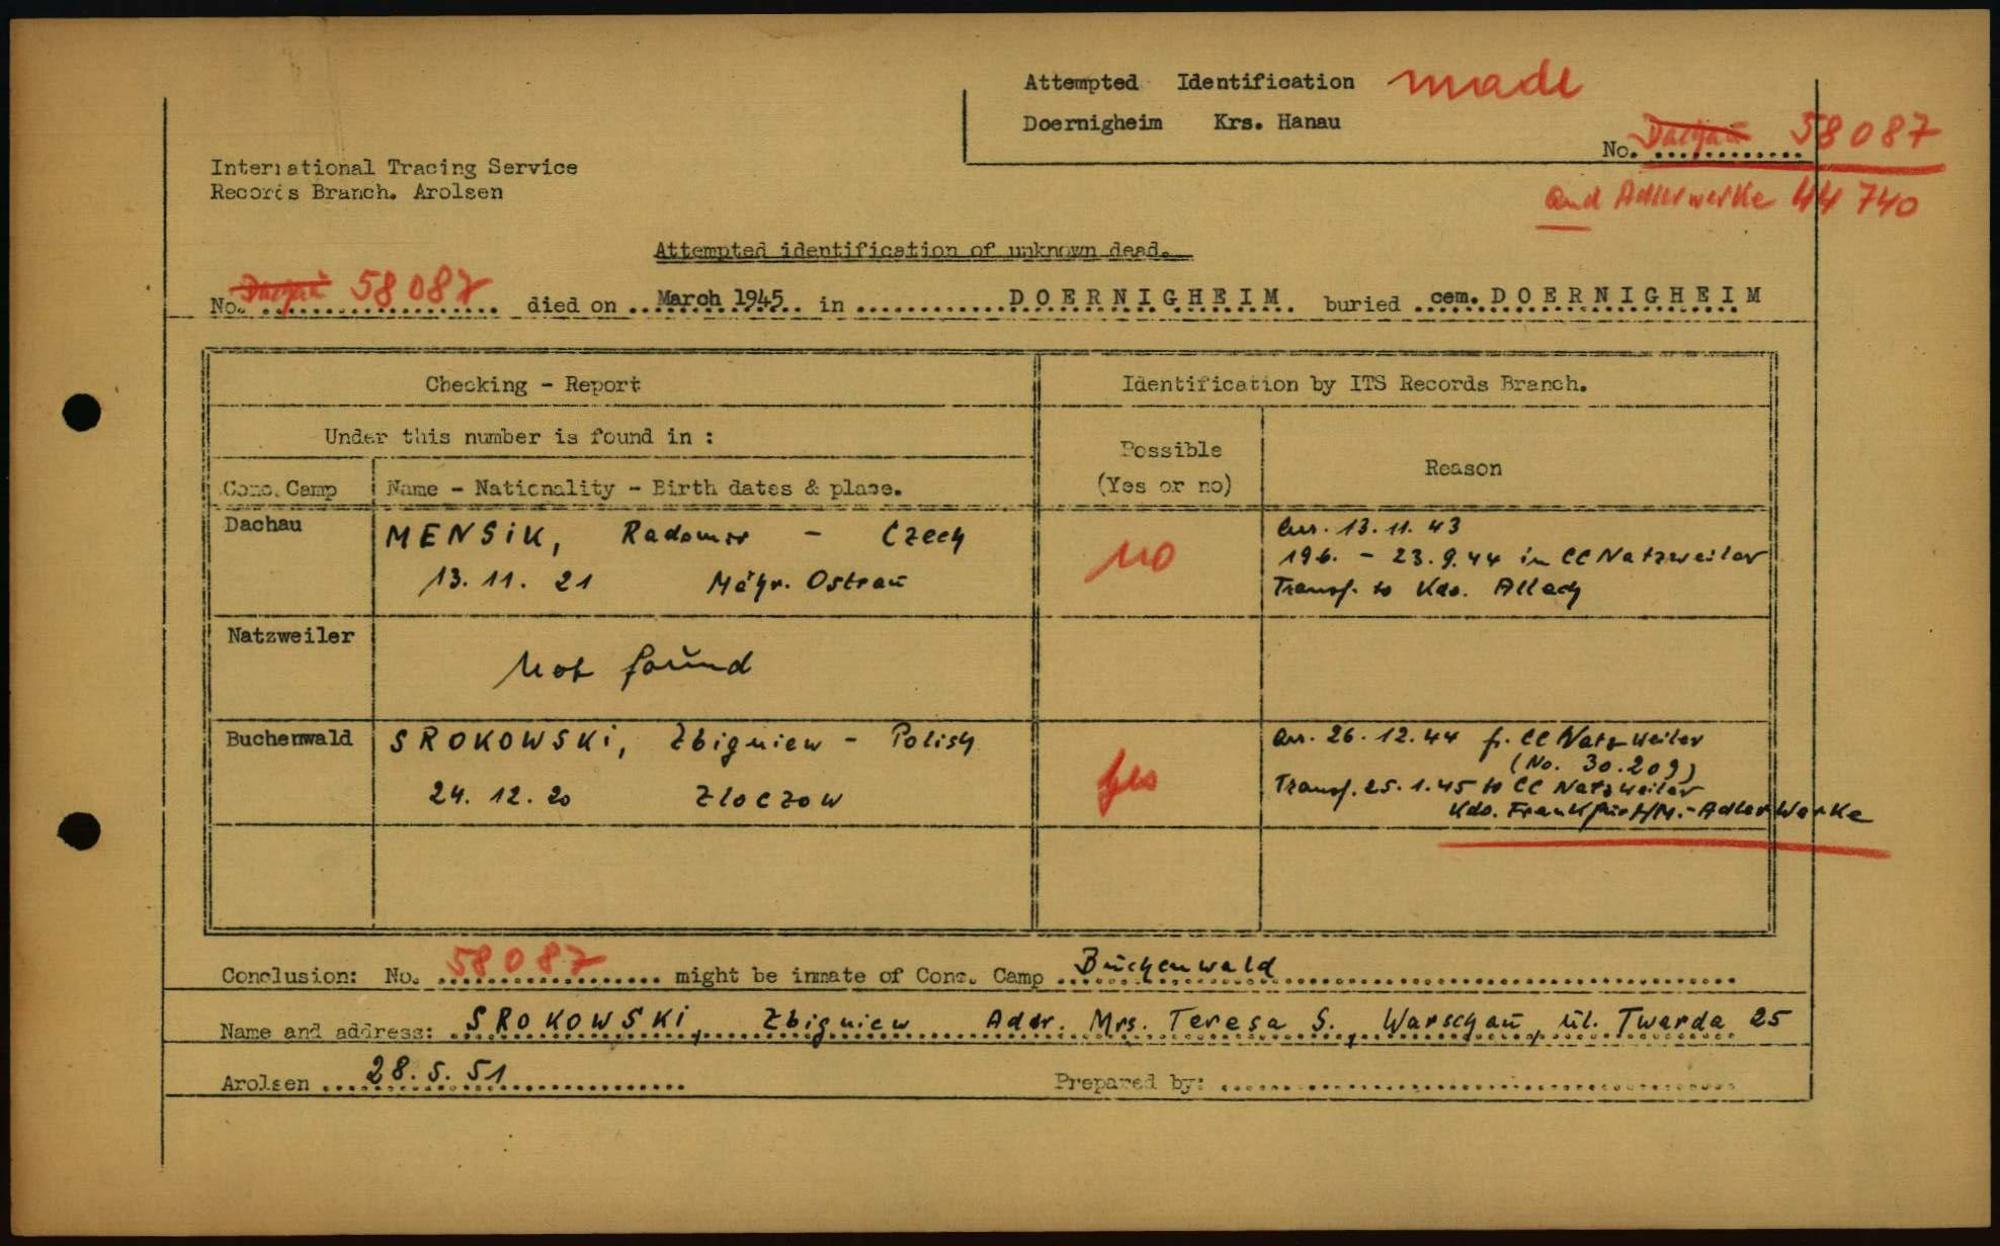 Attempted Identification made
Doernigheim Krs. Hanau
No. Dachau 58087
and Adlerwerke 44740
International Tracing Service
Records Branch. Arolsen
Attempted identification of unknown dead.
No. Dachau 58087 died on March 1945 in DOERNIGHEIM. buried cem. DOERNIGHEIM
Checking - Report
Identification by ITS Records Branch.
Under this number is found in :
Possible
(Yes or no)
Reason
Conc. Camp
Name - Nationality - Birth dates & place.
Dachau
MENSiK, Radomir - Czech
13. 11. 21 Mähr. Ostrau
no
arr. 13. 11. 43
19 6. - 23. 9. 44 in CC Natzweiler
Transf. to Kdo. Allach
Natzweiler
Not found
Buchenwald
SROKOWSKi, Zbigniew - Polish
24. 12. 20 Zloczow
yes
arr. 26. 12. 44 fr. CC Natzweiler
(No. 30.209)
Transf. 25. 1. 45 to CC Natzweiler
Kdo. Frankfurt/M.-AdlerWerke
Conclusion: No. 58087 might be inmate of Conc. Camp Buchenwald
Name and address: SROKOWSKi, Zbigniew Addr. Mrs. Teresa S., Warschau, ul. Twarda 25
Arolsen 28. 5. 51
Prepared by: